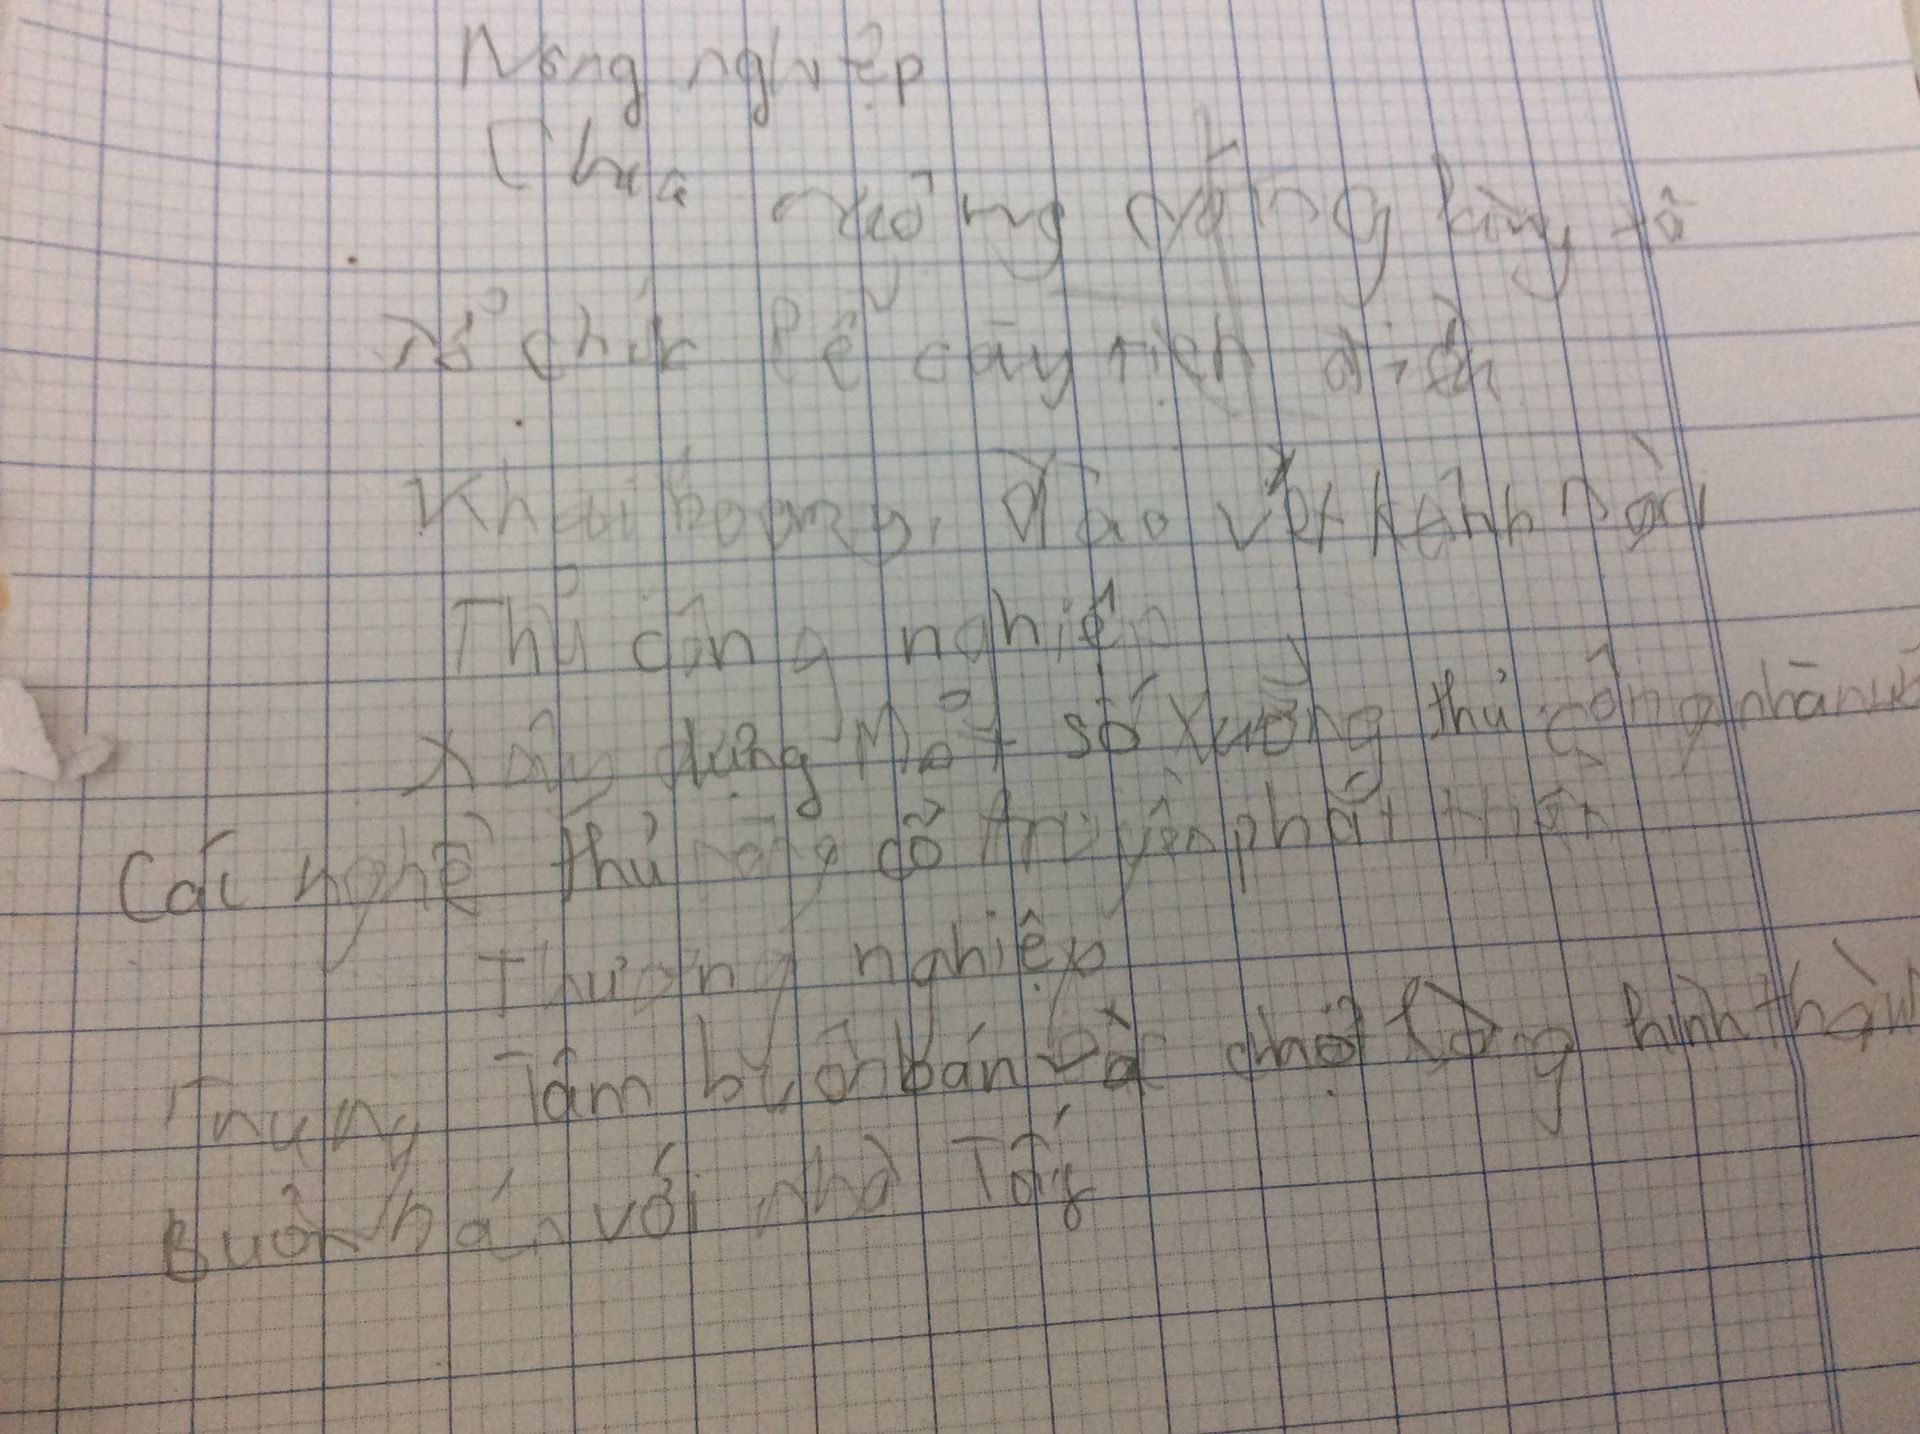 Nông nghiệp
Chia ruộng công làng xã
Tổ chức lễ cày tịch điền
Khai hoang, đào vét kênh ngòi
Thủ công nghiệp
Xây dựng Một số Xưởng thủ công nhà nước
Các nghề thủ công cổ truyền phát triển
Thương nghiệp
Trung Tâm buôn bán và chợ làng hình thành
Buôn bán với nhà Tống